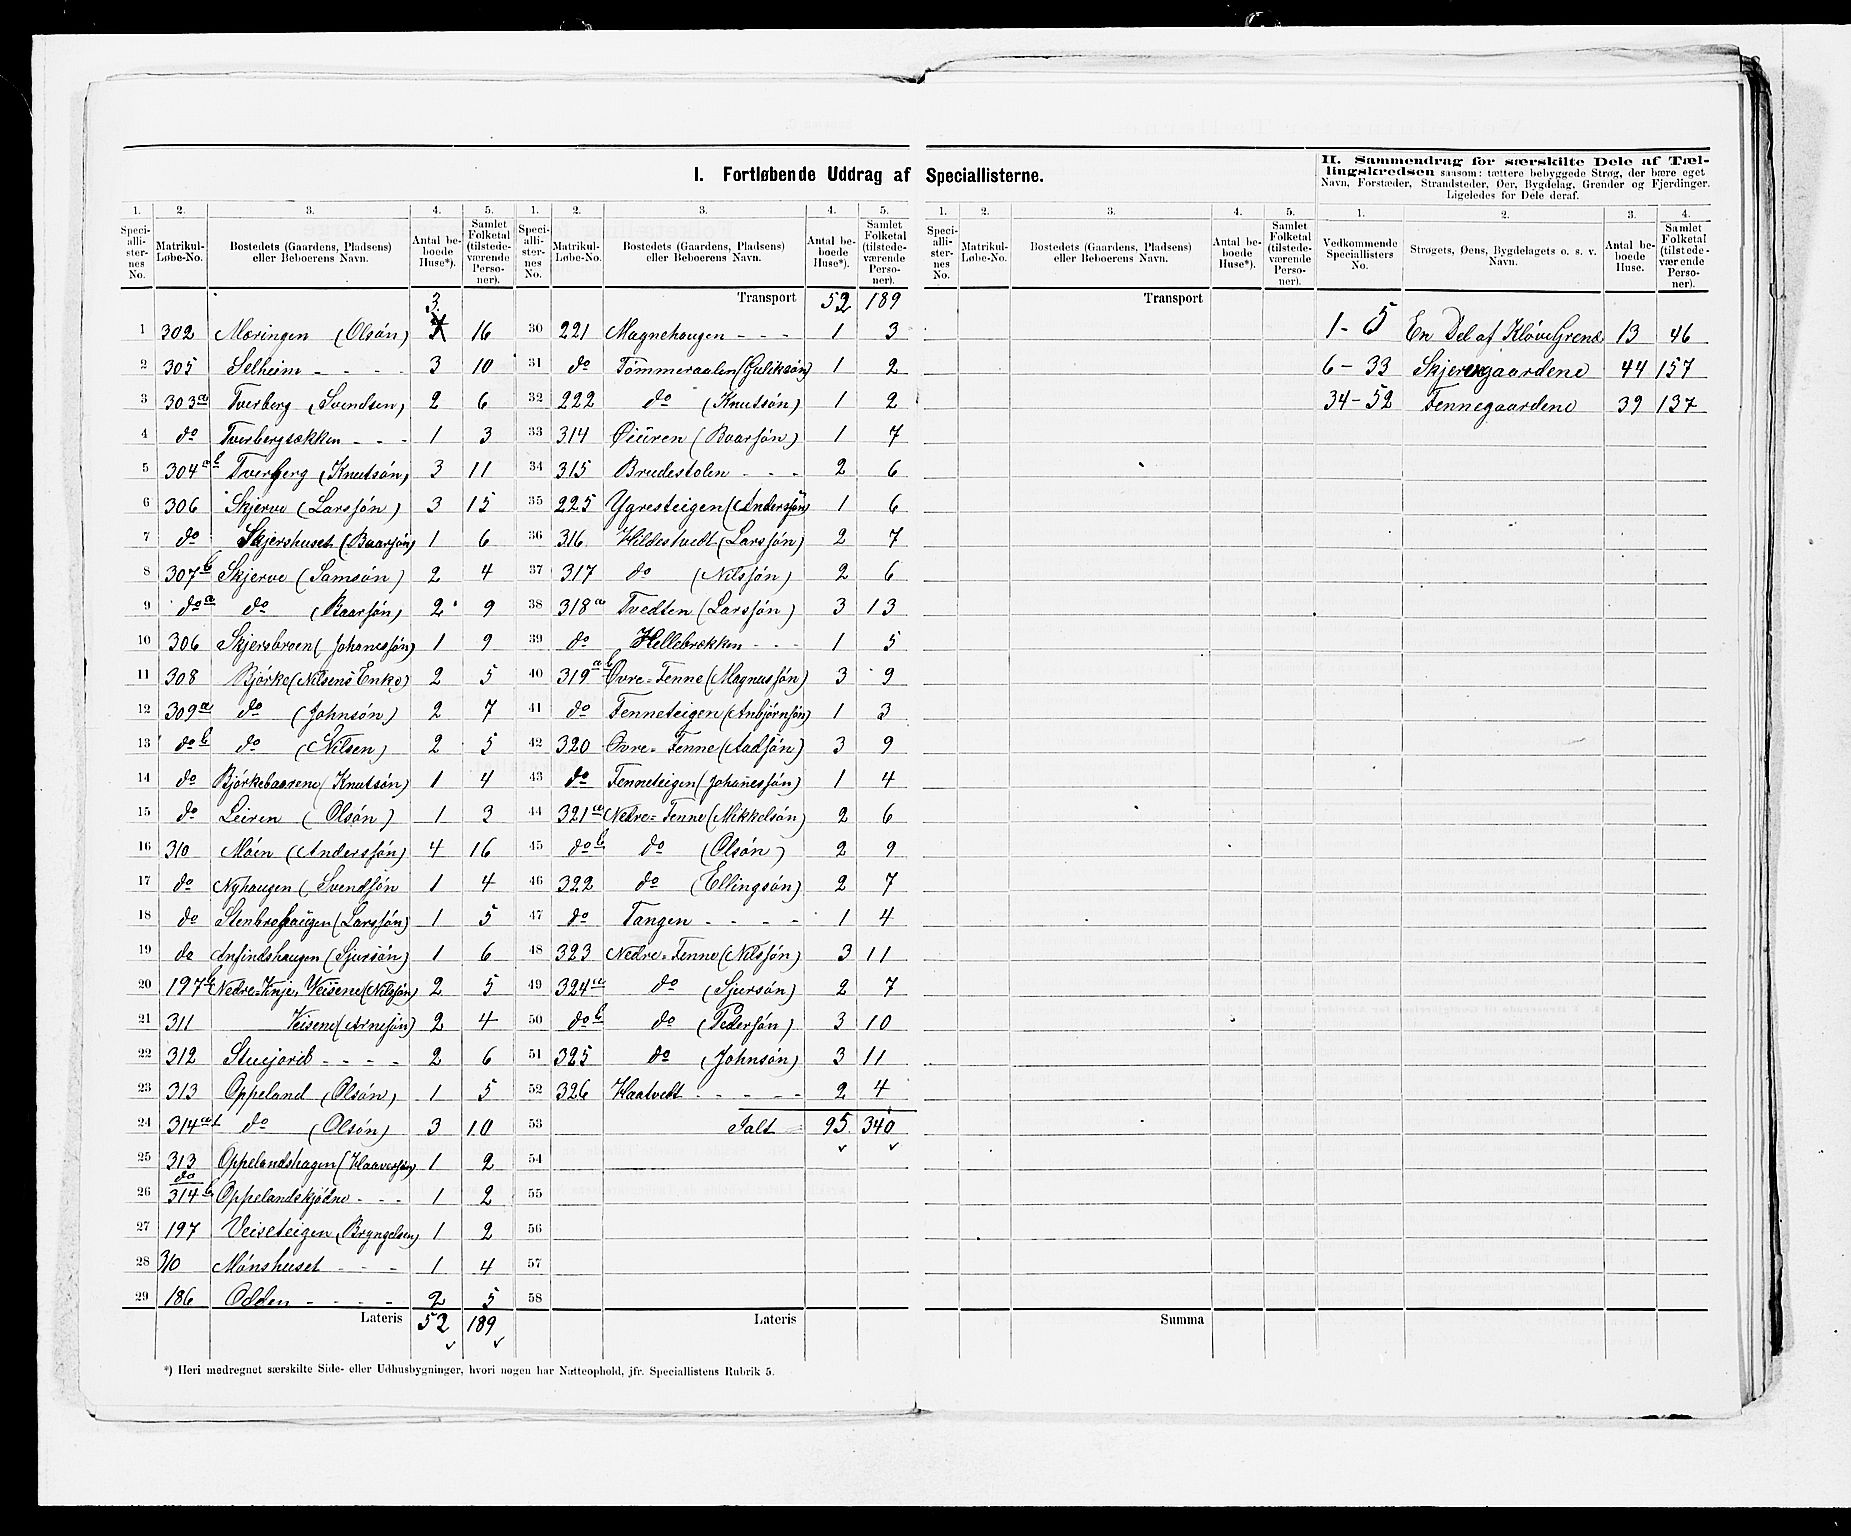 I. Fortløbende Uddrag af Speciallisterne.
II. Sammendrag for særskilte Dele af Tæl-
lingskredsen saasom: tættere bebyggede Strøg, der bære eget
Navn, Forstæder, Strandsteder, Øer, Bygdelag, Grender og Fjerdinger.
Ligeledes for Dele deraf.
1. 2. 3. 4. 5. 1. 2. 3. 4. 5. 1. 2. 3. 4. 5. 1. 2. 3. 4.
Speciallisternes No. Matrikul-Løbe-No. Bostedets (Gaardens, Pladsens) eller Beboerens Navn. Antal beboede Huse*). Samlet Folketal (tilstedeværende Personer).
Speciallisternes No. Matrikul-Løbe-No. Bostedets (Gaardens, Pladsens) eller Beboerens Navn. Antal beboede Huse*). Samlet Folketal (tilstedeværende Personer).
Speciallisternes No. Matrikul-Løbe-No. Bostedets (Gaardens, Pladsens) eller Beboerens Navn. Antal beboede Huse*). Samlet Folketal (tilstedeværende Personer).
Vedkommende Speciallisters No. Strøgets, Øens, Bygdelagets o. s. v. Navn. Antal beboede Huse. Samlet Folketal (tilstedeværende Personer).
1 302 Mæringen (Olsön) 3 16
2 305 Selheim - - - - 3 10
3 303a Tverberg (Svendsen) 2 6
4 do Tverbergsækken - - - 1 3
5 304ab Tverberg (Knutsön) 3 11
6 306 Skjerve (Larssön) 3 15
7 do Skjershuset (Baarsön) 1 6
8 307b Skjerve (Samsön) 2 4
9 do a do (Baarsön) 2 9
10 306 Skjersbroen (Johanessön) 1 9
11 308 Björke (Nilsens Enke) 2 5
12 309a do (Johnsön) 2 7
13 do b do (Nilsen) 2 5
14 do Björkebaarene (Knutsön) 1 4
15 do Leiren (Olsön) 1 3
16 310 Möen (Anderssön) 4 16
17 do Nyhaugen (Svendsön 1 4
18 do Stenbrohaugen (Larssön) 1 5
19 do Anfindshaugen (Sjursön) 1 6
20 197b Nedre-Vinje, Veisene (Nilssön) 2 5
21 311 Veisene (Arnesön) 2 4
22 312 Stuejord - - - - 2 6
23 313 Oppeland (Olsön) 1 5
24 314a do (Olsön) 3 10
25 313 Oppelandshagen (Haaversön) 1 2
26 do 314b Oppelandskjödne - - - 1 2
27 197 Veiseteigen (Bryngelsen) 1 2
28 310 Mönshuset - - - 1 4
29 186 Odden - - - - 2 5
Lateris 52 189
Transport 52 189
30 221 Magnehaugen - - - 1 3
31 do Tömmeraalen (Guliksön) 1 2
32 222 do (Knutsön) 1 2
33 314 Öiüren (Baarsön) 1 7
34 315 Brudestolen - - - 2 6
35 225 Ygresteigen (Anderssön) 1 6
36 316 Hildestvedt (Larssön) 2 7
37 317 do (Nilssön) 2 6
38 318a Tvedten (Larssön) 3 13
39 do Hellebrækken - - - 1 5
40 319ab Övre-Fenne (Magnussön) 3 9
41 do Fenneteigen (Anbjörnsön) 1 3
42 320 Övre-Fenne (Aadsön) 3 9
43 do Fenneteigen (Johanessön) 1 4
44 321a Nedre-Fenne (Mikkelsön) 2 6
45 do b do (Olsön) 2 9
46 322 do (Ellingsön) 2 7
47 do Tangen - - - - 1 4
48 323 Nedre-Fenne (Nilssön) 3 11
49 324a do (Sjursön) 2 7
50 do b do (Pedersön) 3 10
51 325 do (Johnsön) 3 11
52 326 Haatvedt - - - - - 2 4
53 Ialt 95 340
54
55
56
57
58
Lateris
Transport
Summa
1-5 En Del af Klöve Grend 13 46
6-33 Skjervegaardene 44 157
34-52 Fennegaardene 39 137
*) Heri medregnet særskilte Side- eller Udhusbygninger, hvori nogen har Natteophold, jfr. Speciallistens Rubrik 5.